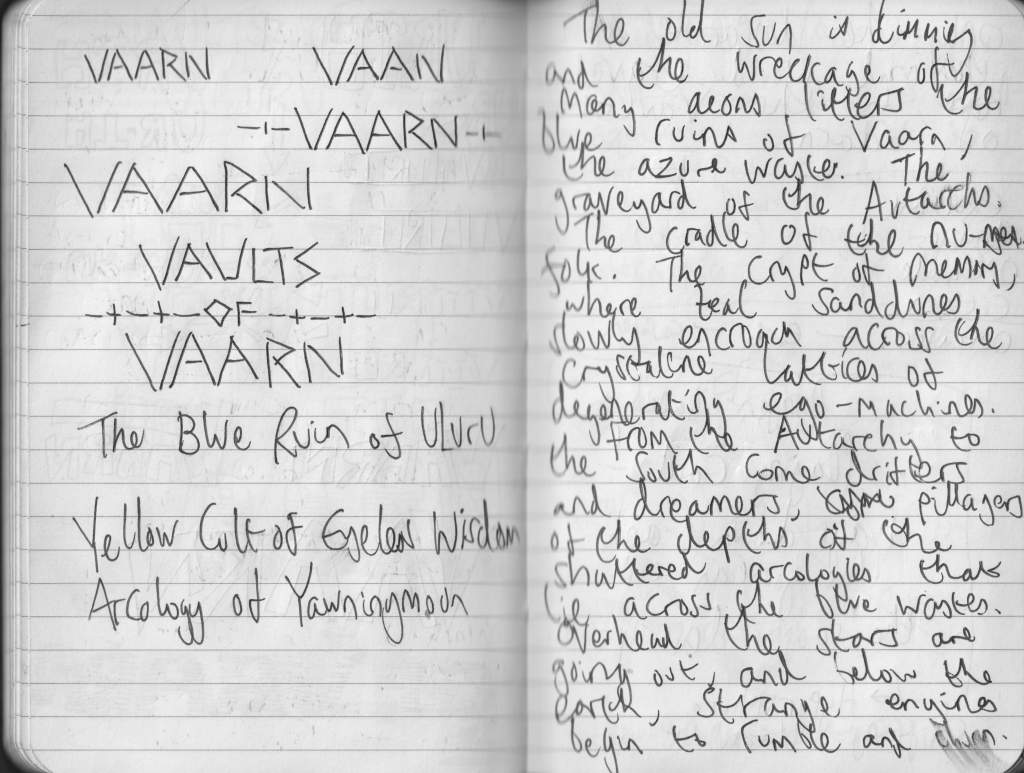 VAARN VAAN
-+-VAARN-+-
VAARN
VAULTS
-+-+-OF-+-+-
VAARN
The Blue Ruin of Uluru
Yellow Cult of Eyeless Wisdom
Arcology of Yawningmoon
The old sun is dimming
and the wreckage of
many aeons litters the
blue ruins of Vaarn,
the azure waste. The
graveyard of the Autarchs.
The cradle of the nu-
folk. The crypt of memory,
where teal sanddunes
slowly encroach across the
crystaline lattices of
degenerating ego-machines.
from the Autarchy to
the south come drifters
and dreamers, pillagers
of the depths of the
shattered arcologies that
lie across the blue wastes.
Overhead the stars are
going out, and below the
earth, strange engines
begin to rumble and churn.